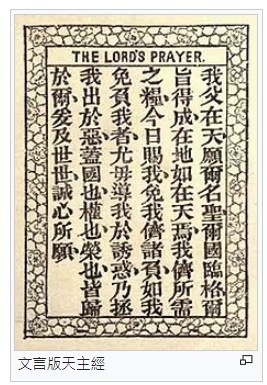 THE LORD'S PRAYER.
我父在天願爾名聖爾國臨格爾
旨得成在地如在天焉我儕所需
之糧今日賜我免我儕諸負如我
免負我者尤毋導我於誘惑乃拯
我出於惡蓋國也權也榮也皆歸
於爾爰及世世誠心所願
文言版天主經